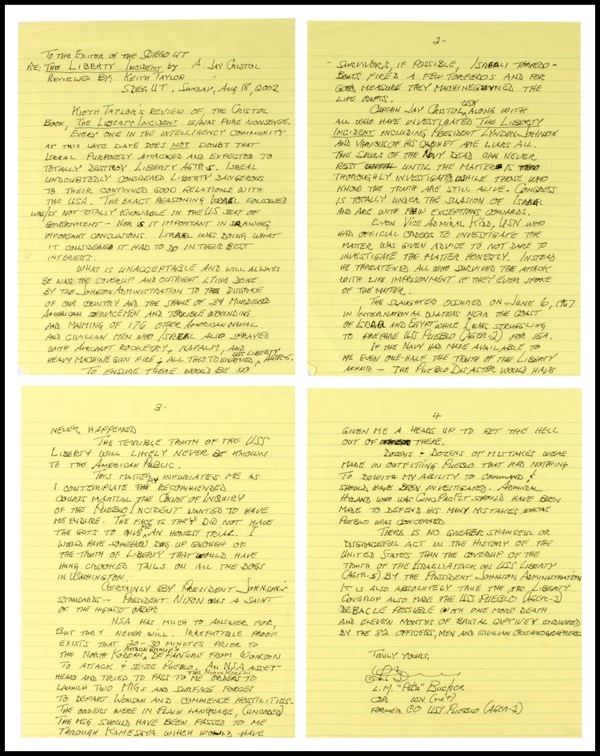 TO THE EDITOR OF THE SDIEGO UT
RE: THE LIBERTY INCIDENT BY A. JAY CRISTOL
REVIEWED BY: KEITH TAYLOR
SDIEG UT., SUNDAY, AUG 18, 2002
KIETH TAYLOR'S REVIEW OF, THE CRISTOL
BOOK, THE LIBERTY INCIDENT IS/WAS PURE NONSENSE.
EVERY ONE IN THE INTELLIGENCY COMMUNITY
AT THIS LATE DATE DOES NOT DOUBT THAT
ISREAL PURPOSELY ATTACKED AND EXPECTED TO
TOTALLY DESTROY LIBERTY AGTR-5. ISREAL
UNDOUBTEDLY CONSIDERED LIBERTY DANGEROUS
TO THEIR CONTINUED GOOD RELATIONS WITH
THE USA. THE EXACT REASONING ISRAEL FOLLOWED
WAS/IS NOT TOTALLY KNOWABLE IN THE US SEAT OF
GOVERNMENT - NOR IS IT IMPORTANT IN DRAWING
IMPORTANT CONCLUSIONS. ISRAEL WAS DOING WHAT
IT CONSIDERED IT HAD TO DO IN THEIR BEST
INTERESTS.
WHAT IS UNACCEPTABLE AND WILL ALWAYS
BE WAS THE COVERUP AND OUTRIGHT LYING DONE
BY THE JOHNSON ADMINISTRATION TO THE DISGRACE
OF OUR COUNTRY AND THE SHAME OF 34 MURDERED
AMERICAN SERVICEMEN AND TERRIBLE WOUNDING
AND MAIMING OF 176 OTHER AMERICAN NAVAL
AND CIVILIAN MEN WHO ISREAL ALSO SPRAYED
WITH AIRCRAFT ROCKETRY, NAPALM, AND
HEAVY MACHINE GUN FIRE, ALL THIS TO UNARMED USS LIBERTY, AGTR-5.
TO ENSURE THERE WOULD BE NO
2-
SURVIVORS, IF POSSIBLE, ISRAELI TORPEDO-
BOATS FIRED A FEW TORPEDOS AND FOR
GOOD MEASURE THEY MACHINEGUNNED THE
LIFE BOATS.
CAPTAIN JAY CRISTOL, USN ALONG WITH
ALL WHO HAVE INVESTIGATED THE LIBERTY
INCIDENT, INCLUDING PRESIDENT LYNDON JOHNSON
AND VARIOUS OF HIS CABINET ARE LIARS ALL.
THE SOULS OF THE NAVY DEAD CAN NEVER
REST UNTIL THE MATTER IS
THOROUGHLY INVESTIGATED WHILE THOSE WHO
KNOW THE TRUTH ARE STILL ALIVE. CONGRESS
IS TOTALLY UNDER THE SUASION OF ISRAEL
AND ARE WITH FEW EXCEPTIONS COWARDS.
EVEN VICE ADMIRAL KIDD, USN WHO
HAD OFFICIAL ORDERS TO INVESTIGATE THE
MATTER WAS GIVEN ADVICE TO NOT DARE TO
INVESTIGATE THE MATTER HONESTLY. INSTEAD
HE THREATENED ALL WHO SURVIVED THE ATTACK
WITH LIFE IMPRISONMENT IF THEY EVER SPOKE
OF THE MATTER.
THE SLAUGHTER OCCURED ON JUNE 6, 1967
IN INTERNATIONAL WATERS NEAR THE COAST
OF AND EGYPT WHILE I WAS STRUGGLING
TO PREPARE USS PUEBLO (AGER-2) FOR SEA.
IF THE NAVY HAD MADE AVAILABLE TO
ME EVEN ONE-HALF THE TRUTH OF THE LIBERTY
AFFAIR - THE PUEBLO DISASTER WOULD HAVE
3-
NEVER HAPPENED.
THE TERRIBLE TRUTH OF THE USS
LIBERTY WILL LIKELY NEVER BE KNOWN
TO THE AMERICAN PUBLIC.
THIS MATTER INFURIATES ME AS
I CONTEMPLATE THE RECOMMENDED
COURTS MARTIAL THE COURT OF INQUIRY
OF THE PUEBLO INCIDENT WANTED TO HAVE
ME ENDURE. THE FACT IS THEY DID NOT HAVE
THE GUTS TO GIVE ME AN HONEST TRIAL. I
WOULD HAVE SOMEHOW DUG UP ENOUGH OF
THE TRUTH OF LIBERTY THAT WOULD HAVE
HUNG CROOKED TAILS ON ALL THE DOGS
IN WASHINGTON.
CERTAINLY (BY PRESIDENT JOHNSON'S
STANDARDS - PRESIDENT NIXON WAS A SAINT
OF THE HIGHEST ORDER.
NSA HAS MUCH TO ANSWER FOR,
BUT THEY NEVER WILL. IRREFUTIBLE PROOF
EXISTS THAT 20-30 MINUTES PRIOR TO
THE NORTH KOREAN DEPARTURE FROM WONSON
TO ATTACK & SEIZE PUEBLO, AN NSA ASSET
HEARD AND TRIED TO PASS TO ME THE NORTH KOREAN ORDERS TO
LAUNCH TWO MIGS AND SURFACE FORCES
TO DEPART WONSON AND COMMENCE HOSTILITIES.
THE ORDERS WERE IN PLAIN LANGUAGE, (UNCODED)
THE MSG SHOULD HAVE BEEN PASSED TO ME
THROUGH KAMESEYA WHICH WOULD HAVE
4
GIVEN ME A HEADS UP TO GET THE HELL
OUT OF THERE.
DOZENS & DOZENS OF MISTAKES WERE
MADE IN OUTFITTING PUEBLO THAT HAD NOTHING
TO DO WITH MY ABILITY TO COMMAND &
SHOULD HAVE BEEN INVESTIGATED. ADMIRAL
HYLAND WHO WAS CINCPACFLT SHOULD HAVE BEEN
MADE TO DEFEND HIS MANY MISTAKES WHERE
PUEBLO WAS CONCERNED.
THERE IS NO GREATER SHAMEFUL OR
DISGRACEFUL ACT IN THE HISTORY OF THE
UNITED STATES THAN THE COVERUP OF THE
TRUTH OF THE ISRAELI ATTACK ON USS LIBERTY
(AGTR-5) BY THE PRESIDENT JOHNSON ADMINISTRATION
IT IS ALSO ABSOLUTELY TRUE THE LIBERTY
COVERUP ALSO MADE THE USS PUEBLO (AGER-2)
DEBACLE POSSIBLE WITH ONE MORE DEATH
AND ELEVEN MONTHS OF BRUTAL CAPTIVITY ENDURED
BY THE 82 OFFICERS, MEN AND CIVILIAN OCEANOGRAPHERS.
TRULY YOURS,
L.M. "PETE" BUCHER
CDR USN (RET)
FORMER CO USS PUEBLO (AGER-2)